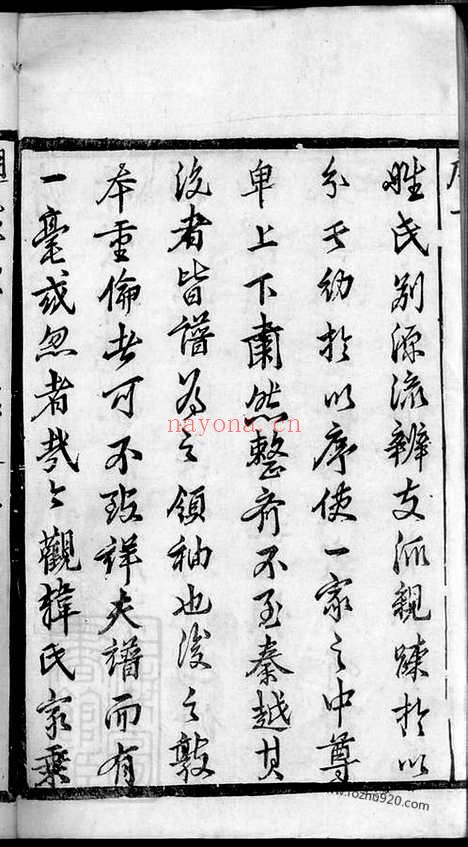 姓氏别源流辨支派親疎於以
分長幼於以序使一家之中尊
卑上下肅然整齊不至秦越其
後者皆譜為之領袖也後之敦
本重倫者可不致詳夫譜而有
一毫或忽者哉今觀韓氏家乘
nayona.cn
www.rozhu920.com